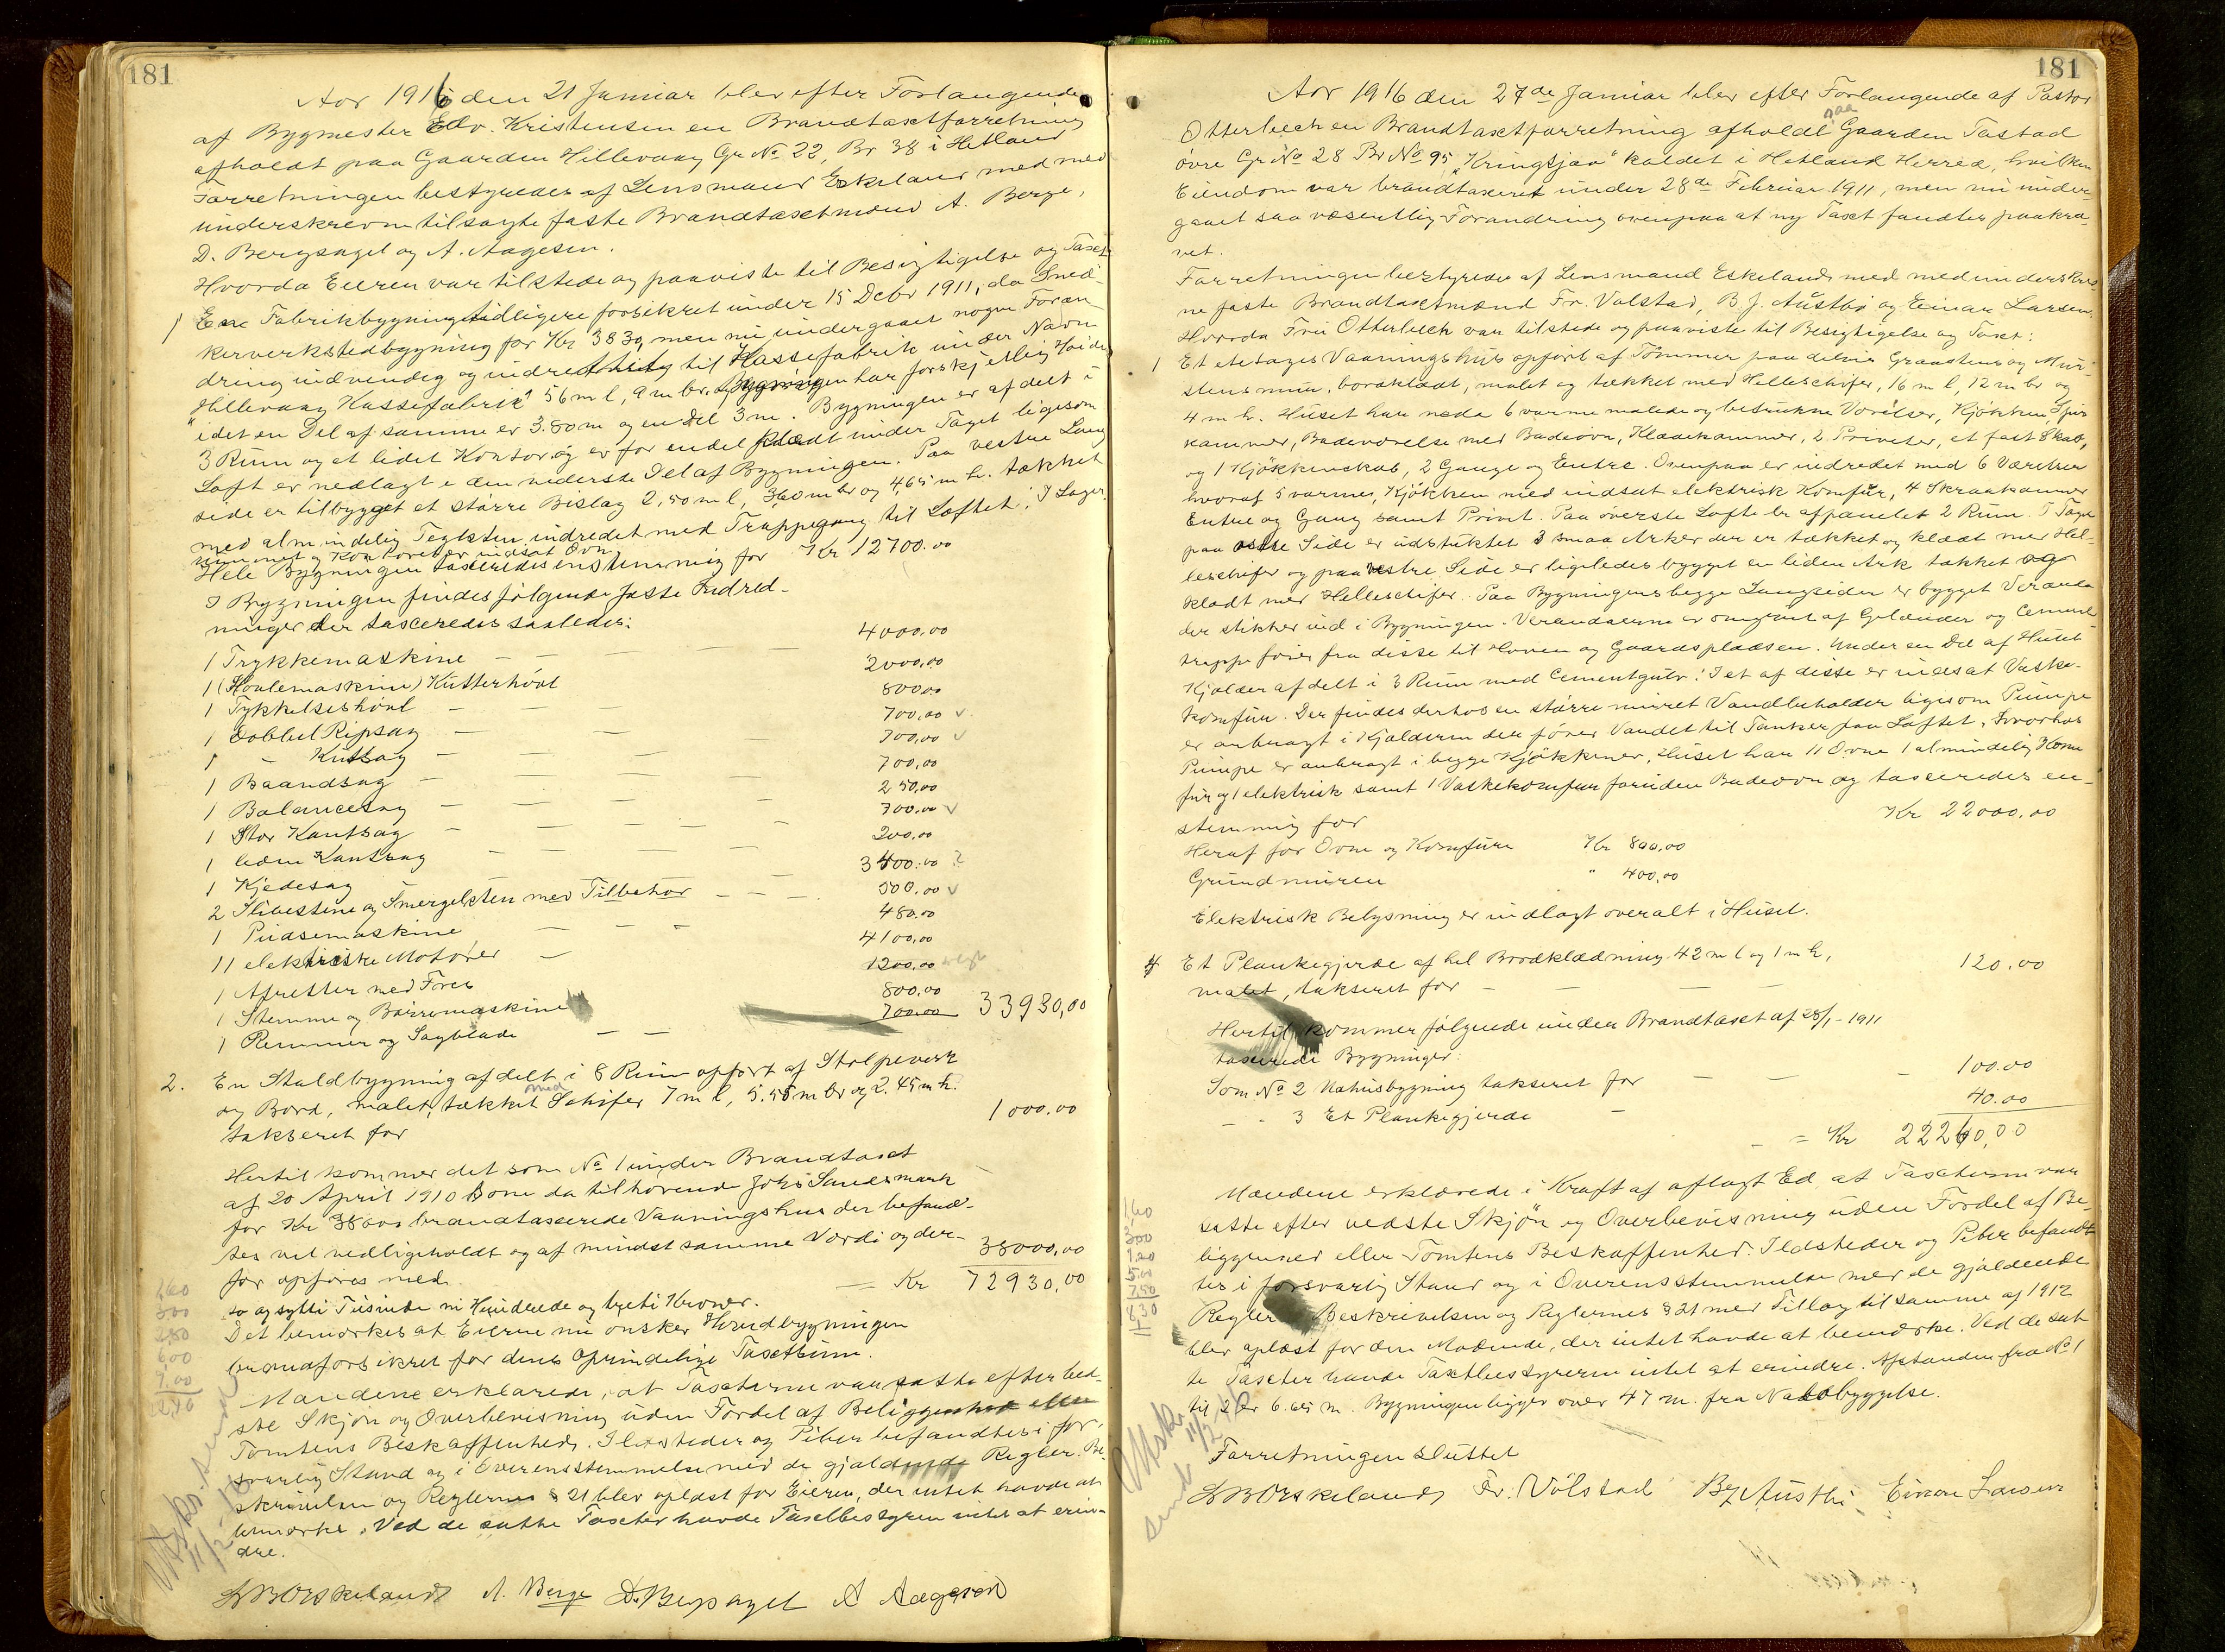 181
Aar 1916 den 21 Januar blev efter Forlangende
af Bygmester Edv. Kristensen en Brandtaxtforretning
afholdt paa Gaarden Hillevaag Gr No 22, Br 38 i Hetland
Forretningen bestyredes af Lensmand Eskeland med med
underskrevne tilsagte faste Brandtaxtmænd A. Berge,
D. Bergsagel og A. Aagesen.
Hvorda Eieren var tilstede og paaviste til Besigtigelse og Taxt
1 Ene Fabrikbygning tidligere forsikret under 15 Decbr 1911, da Sned-
kerverkstedbygning for Kr 3830, men nu undergaaet nogen Foran
dring indvendig og indredet til Kassefabrik under Navn
"Hillevaag Kassefabrik" 56 m l, 9 m br. Bygningen har forskjellig Høide
idet en Del af samme er 3.80 m og en Del 3 m. Bygningen er afdelt i
3 Rum og et lidet Kontor og er for endel klædt under Taget ligesom
Loft er nedlagt i den nederste Del af Bygningen. Paa vestre Lang
side er tilbygget et større Bislag 2,50 m l, 3,60 m br og 4,65 m h. tækket
med almindelig Teglsten indredet med Trappegang til Loftet. I Lager
rummet og Kontoret er indsat Ovn.
Hele Bygningen taxeredes enstemmig for Kr 12700.00
I Bygningen findes følgende faste Indred-
ninger der taxeredes saaledes:
1 Trykkemaskine — — — 4000.00
1 (Hovlemaskine) Kutterhøvl 2000,00
1 Tykkelseshøvl — — — 800,00
1 Dobbel Ripsag — — — 700,00 v
1 " Kutsag — — — 700,00 v
1 Baandsag — — — 700,00
1 Balancesag — — — 250,00
1 Stor Kantsag — — — 700.00 v
1 liden Kantsag — — — 200,00
1 Kjedesag — — — 3400.00 ?
2 Slibestene og Smergelsten med Tilbehør — — 500.00 v
1 Pudsemaskine — — - 480.00
11 elektriske Motorer — 4100,00
1 Afretter med Fres 1200,00
1 Stemme og Borremaskine 800.00
1 Remmer og Sagblade — — 700.00 33930,00
2. En Staldbygning afdelt i 8 Rum opført af Stolpeverk
og Bord, malet, tækket med Schifer 7 m l, 5.55 m br og 2.45 m h.
takseret for 1000.00
Hertil kommer det som No 1 under Brandtaxt
af 20 April 1910 tilhørende Johs Sandsmark
for Kr 38000 brandtaxerede Vaaningshus der befand-
tes vel vedligeholdt og af mindst samme Værdi og der-
for opføres med 38000,00
= Kr 72930,00
to og sytti Tusinde ni Hundrede og treti Kroner.
Det bemærkes at Eieren nu ønsker Hovedbygningen
brandforsikret for dens oprindelige Taxtsum.
Mændene erklærede, at Taxterne var satte efter bed-
ste Skjøn og Overbevisning uden Fordel af Beliggenhed eller
Tomtens Beskaffenhed. Ildsteder og Piber befandtes i for-
svarlig Stand og i Overensstemmelse med de gjældende Regler. Be-
skrivelsen og Reglernes § 21 blev oplæst for Eieren, der intet havde at
bemærke. Ved de satte Taxter havde Taxtbestyren intet at erin-
dre.
Utskr. sendt
11/2-16
A. Berge D. Bergsagel A Aagesen
181
Aar 1916 den 27de Januar blev efter Forlangende af Pastor
Otterbech en Brandtaxtforretning afholdt paa Gaarden Tastad
øvre Gr No 28 Br No 95 "Kringsjaa" kaldet i Hetland Herred, hvilken
Eiendom var brandtaxeret under 28de Februar 1911, men nu under
gaaet saa væsentlig Forandring ovenpaa at ny Taxt fandtes paakræ-
vet.
Forretningen bestyredes af Lensmand Eskeland med medunderskrev
ne faste Brandtaxtmænd Fr. Volstad, B J. Austbø og Einar Larsen.
Hvorda Fru Otterbech var tilstede og paaviste til Besigtigelse og Taxt:
1 Et etetages Vaaningshus opført af Tømmer paa delvis Graastens og Mur-
stensmur, bordklædt, malet og tækket med Helleschifer, 16 m l, 12 m br og
4 m h. Huset har nede 6 varme malede og betrukne Værelser, Kjøkken Spis
kammer, Badeværelse med Badeovn, Klædekammer, 2 Priveter, et fast Skab,
og 1 Kjøkkenskab, 2 Gange og Entre. Ovenpaa er indredet med 6 Værelser
hvoraf 5 varmes, Kjøkken med indsat elektrisk Komfur, 4 Skraakammer
Entre og Gang samt Privet. Paa øverste Loft er afpanelet 2 Rum. I Taget
paa østre Side er udstuktet 3 smaa Arker der er tækket og klædt med Hel-
leschifer og paa vestre Side er ligeledes bygget en liden Ark tækket og
klædt med Helleschifer. Paa Bygningens begge Langsider er bygget Veranda
der stikker ind i Bygningen. Verandaerne er omgivet af Gelænder og Cement
trappe fører fra disse til Haven og Gaardspladsen. Under en Del af Huset
Kjælder afdelt i 3 Rum med Cementgulv. I et af disse er indsat Vaske-
komfur. Der findes derhos en større muret Vandbeholder ligesom Pumpe
er anbragt i Kjælderen der fører Vandet til Tanker paa Loftet, hvorhos
Pumpe er anbragt i begge Kjøkkener, Huset har 11 Ovne 1 almindelig Kom
fur og 1 elektrisk samt 1 Vaskekomfur foruden Badeovn og taxeredes en-
stemmig for Kr 22000,00
Heraf for Ovne og Komfure Kr 800,00
Grundmuren " 400,00
Elektrisk Belysning er indlagt overalt i Huset.
4 Et Plankegjerde af hel Bordklædning 42 m l og 1 m h,
malet, takseret for — — — 120.00
Hertil kommer følgende under Brandtaxt af 28/1-1911
taxerede Bygninger:
Som No 2 Uthusbygning takseret for — — - 100.00
- - 3 Et Plankegjerde — 40.00
= Kr 22260,00
Mændene erklærede i Kraft af aflagt Ed, at Taxterne var
satte efter bedste Skjøn og Overbevisning uden Fordel af Be-
liggenhed eller Tomtens Beskaffenhed. Ildsteder og Piber befandt
tes i forsvarlig Stand og i Overensstemmelse med de gjældende
Regler Beskrivelsen og Reglernes § 21 med Tillæg til samme af 1912
blev oplæst for den Mødende, der intet havde at bemærke. Ved de sat
te Taxter havde Taxtbestyreren intet at erindre. Afstanden fra No 1
til 2 er 6.65 m. Bygningen ligger over 47 m. fra Nabobyggelse.
Forretningen sluttet
Utskr. sendt 11/2-16
Fr: Volstad B J Austbø Einar Larsen